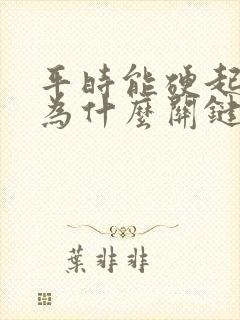 平時能硬起
為什麼關鍵
葉非非